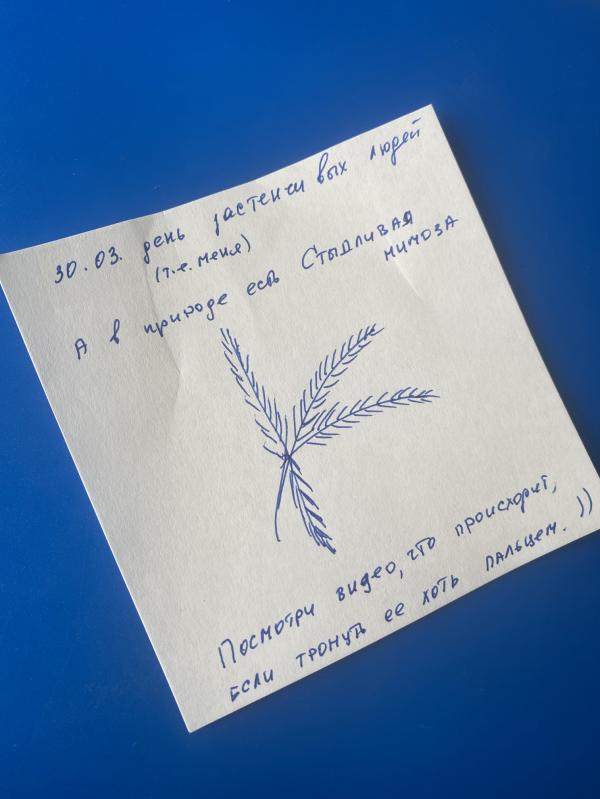 30.03. день застенчивых людей
(т.е. меня)
А в природе есть Стыдливая
мимоза
Посмотри видео, что происходит,
если тронуть ее хоть пальцем. ))